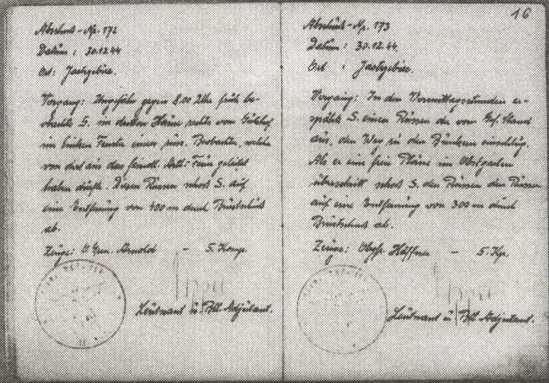 16
Abschuß-Nr. 172
Datum: 30.12.44
Ort: Jaszfelsö.
Vorgang: Ungefähr gegen 8.00 Uhr früh be-
S. im
im linken Fenster einen russ. Beobachter, welcher
von dort aus das feindl. Artl.-Feuer geleitet
haben dürfte. Diesen Russen schoß S. auf
eine Entfernung von 400 m durch Brustschuß
ab.
Zeuge: O.Gren. Arnold - 5. Komp.
Leutnant u. Btl. Adjutant.
Abschuß-Nr. 173
Datum: 30.12.44.
Ort:
Vorgang: In den Vormittagsstunden er-
spähte S. einen Russen der vom
aus, den Weg zu den Bunkern einschlug.
Als er eine freie Fläche im Obstgarten
überschritt schoß S. den Russen
auf eine Entfernung von 300 m durch
Brustschuß ab.
Zeuge: Ogfr. Häffner - 5. Kp.
Leutnant u. Btl. Adjutant.